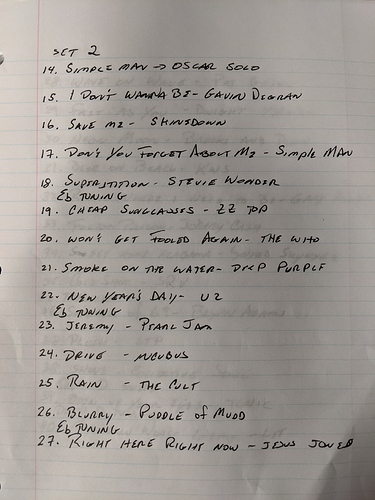 SET 2
14. SIMPLE MAN → OSCAR SOLO
15. I DON'T WANNA BE - GAVIN DEGRAN
16. SAVE ME - SHINEDOWN
17. DON'T YOU FORGET ABOUT ME - SIMPLE MAN
18. SUPERSTITION - STEVIE WONDER
Eb TUNING
19. CHEAP SUNGLASSES - ZZ TOP
20. WON'T GET FOOLED AGAIN - THE WHO
21. SMOKE ON THE WATER - DEEP PURPLE
22. NEW YEAR'S DAY - U2
Eb TUNING
23. JEREMY - PEARL JAM
24. DRIVE - INCUBUS
25. RAIN - THE CULT
26. BLURRY - PUDDLE of MUDD
Eb TUNING
27. RIGHT HERE RIGHT NOW - JESUS JONES